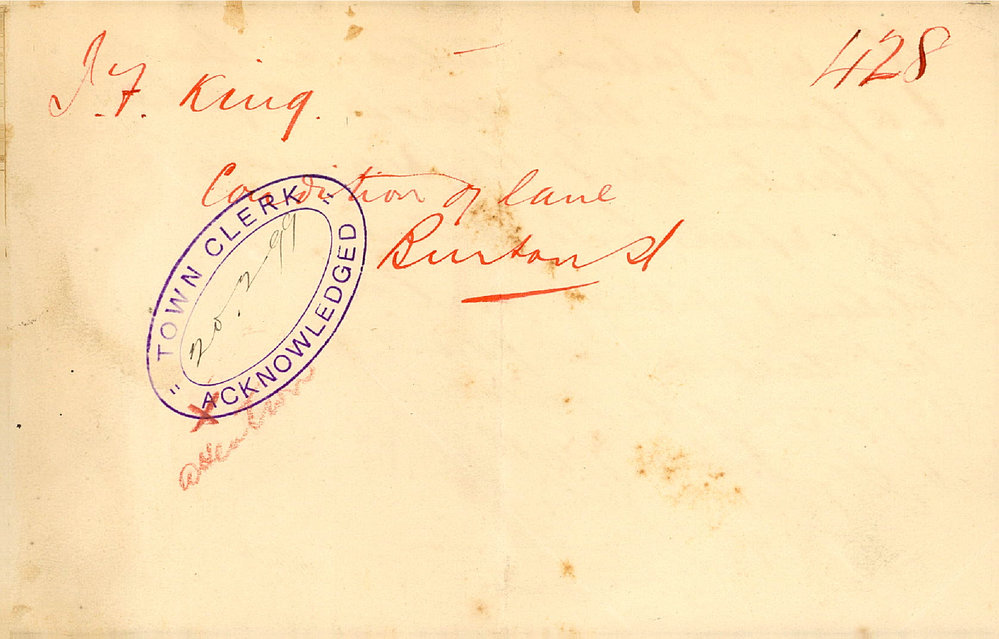 428
J. F. King.
Condition of lane
Burton St
" TOWN CLERK "
20.2.99
ACKNOWLEDGED
X
attention